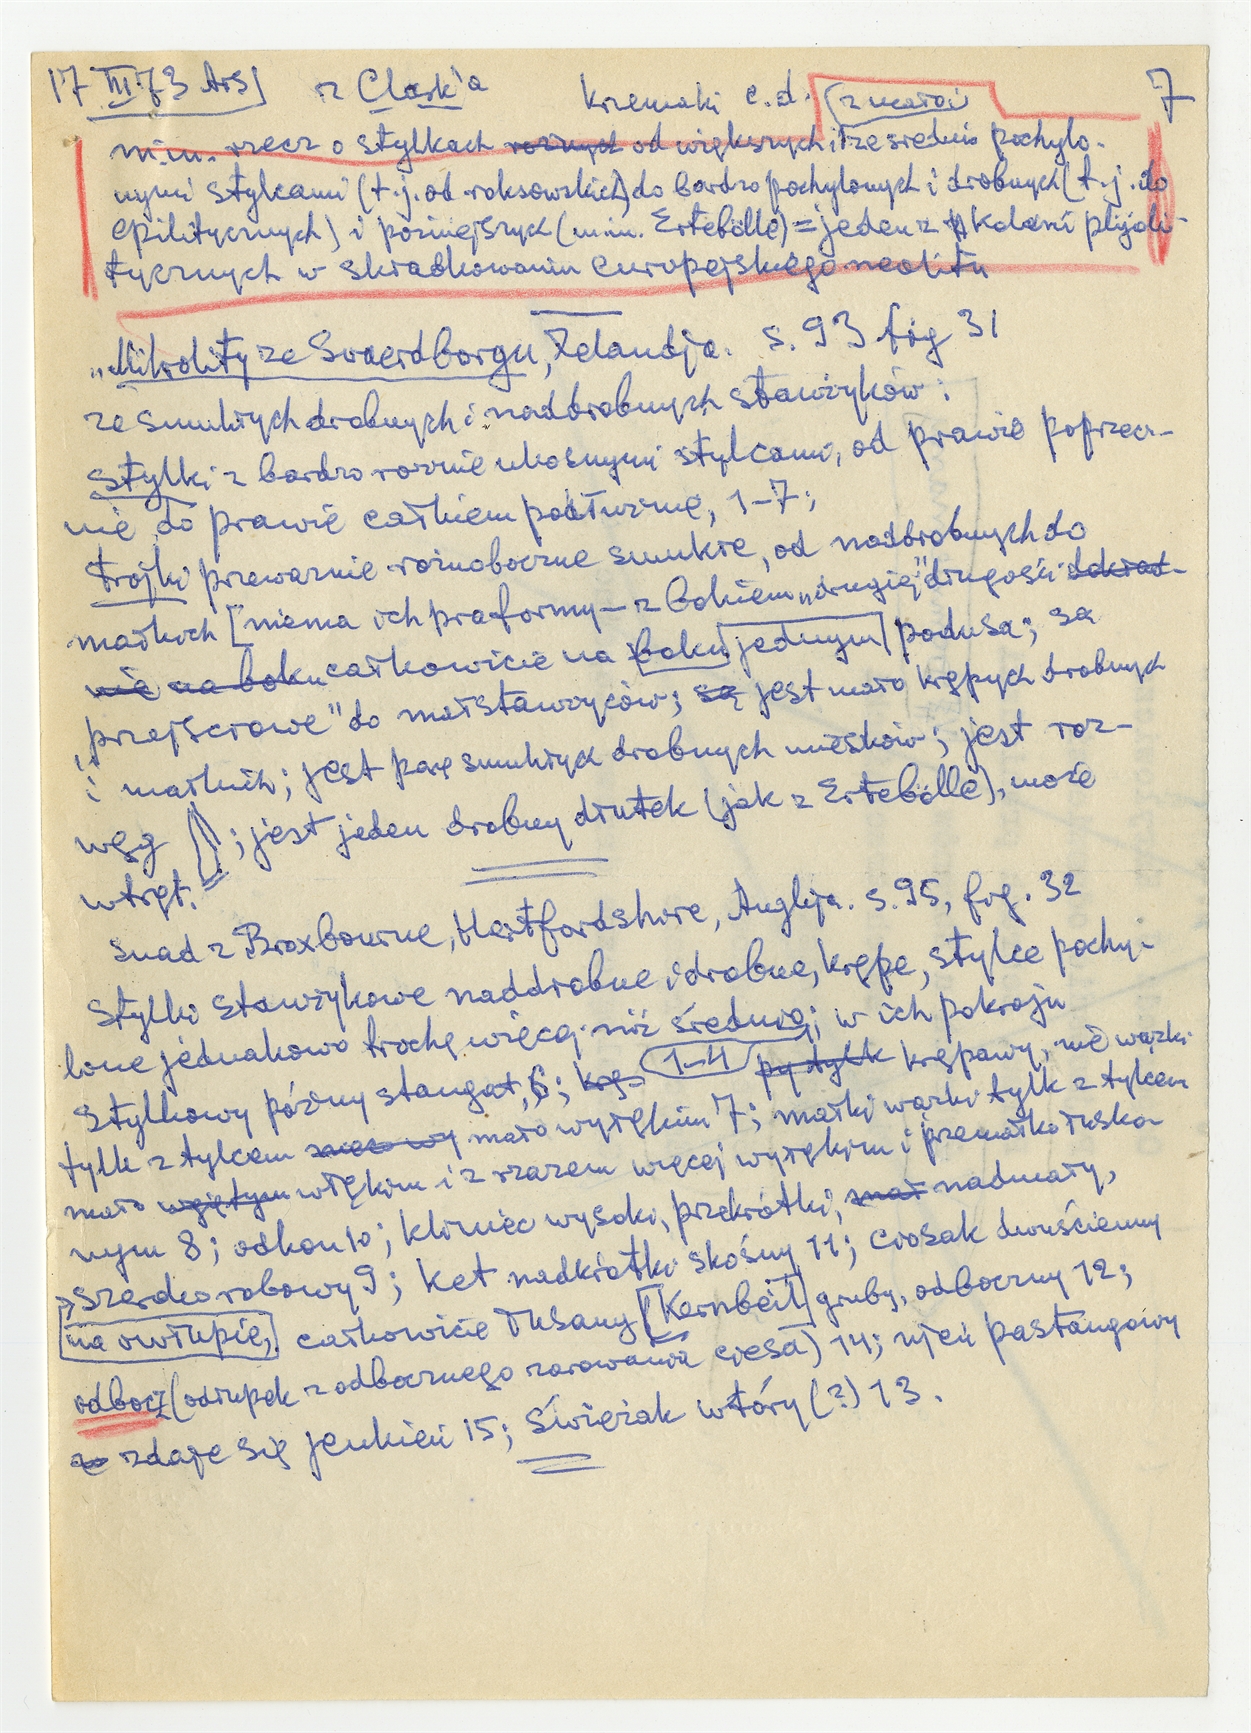 17 III 73 Ars] z Clark'a krzemaki c.d. (z uwagi 7
m.in. rzecz o stylkach rożnych od większych i ze srednio pochylo-
nymi stylcami (t.j. od roksowskich) do bardzo pochylonych i drobnych (t.j. do
epilitycznych) i poźniejszych (m.in. Ertebölle) = jeden z kolani plijoli-
tycznych w składkowaniu europejskiego neolitu
"Mikrolity ze Svaerdborgu, Zelandja. s. 93 fig 31
ze smukłych drobnych i naddrobnych stawżyków:
stylki z bardzo roznie ukosnymi stylcami, od prawie poprzecz-
nie do prawie całkiem podłużnie, 1-7;
trojki przeważnie roznoboczne smukłe, od naddrobnych do
małkich [niema ich praformy – z bokiem "drugiej" długości dokład-
nie na boku całkowicie na boku jednym] podusa; są
"przejsciowe" do małstawżyców; są jest mało krępych drobnych
i małkich; jest parę smukłych drobnych mieskow; jest roz-
węg ; jest jeden drobny dłutek (jak z Ertebölle), może
wtręt.
snad z Broxbourne, Hertfordshire, Anglja. s. 95, fig. 32
stylki stawżykowe naddrobne i drobne, krępe, stylce pochy-
lone jednakowo trochę więcej niż średnio; w ich pokroju
stylkowy późny stangat, 6; krę- 1-4 py tylk krępawy, nie wązki
tylk z tylcem mało wyrękim 7; małki wązki tylk z tylcem
mało wygiętym włękim i z rzazem więcej wyrękim i przemałko łuska-
nym 8; odkon 10; kliniec wysoki, przekrótki, mał nadmały,
szerokorobowy 9; ket nadkrótki skośny 11; ciosak dwuścienny
na owłupie, całkowicie łusany [Kernbeil] gruby, odboczny 12;
odbocz (odłupek z odbocznego zarowania ciesa) 14; njeń pastangowy
zdaje się jenkień 15; świężak wtóry (?) 13.